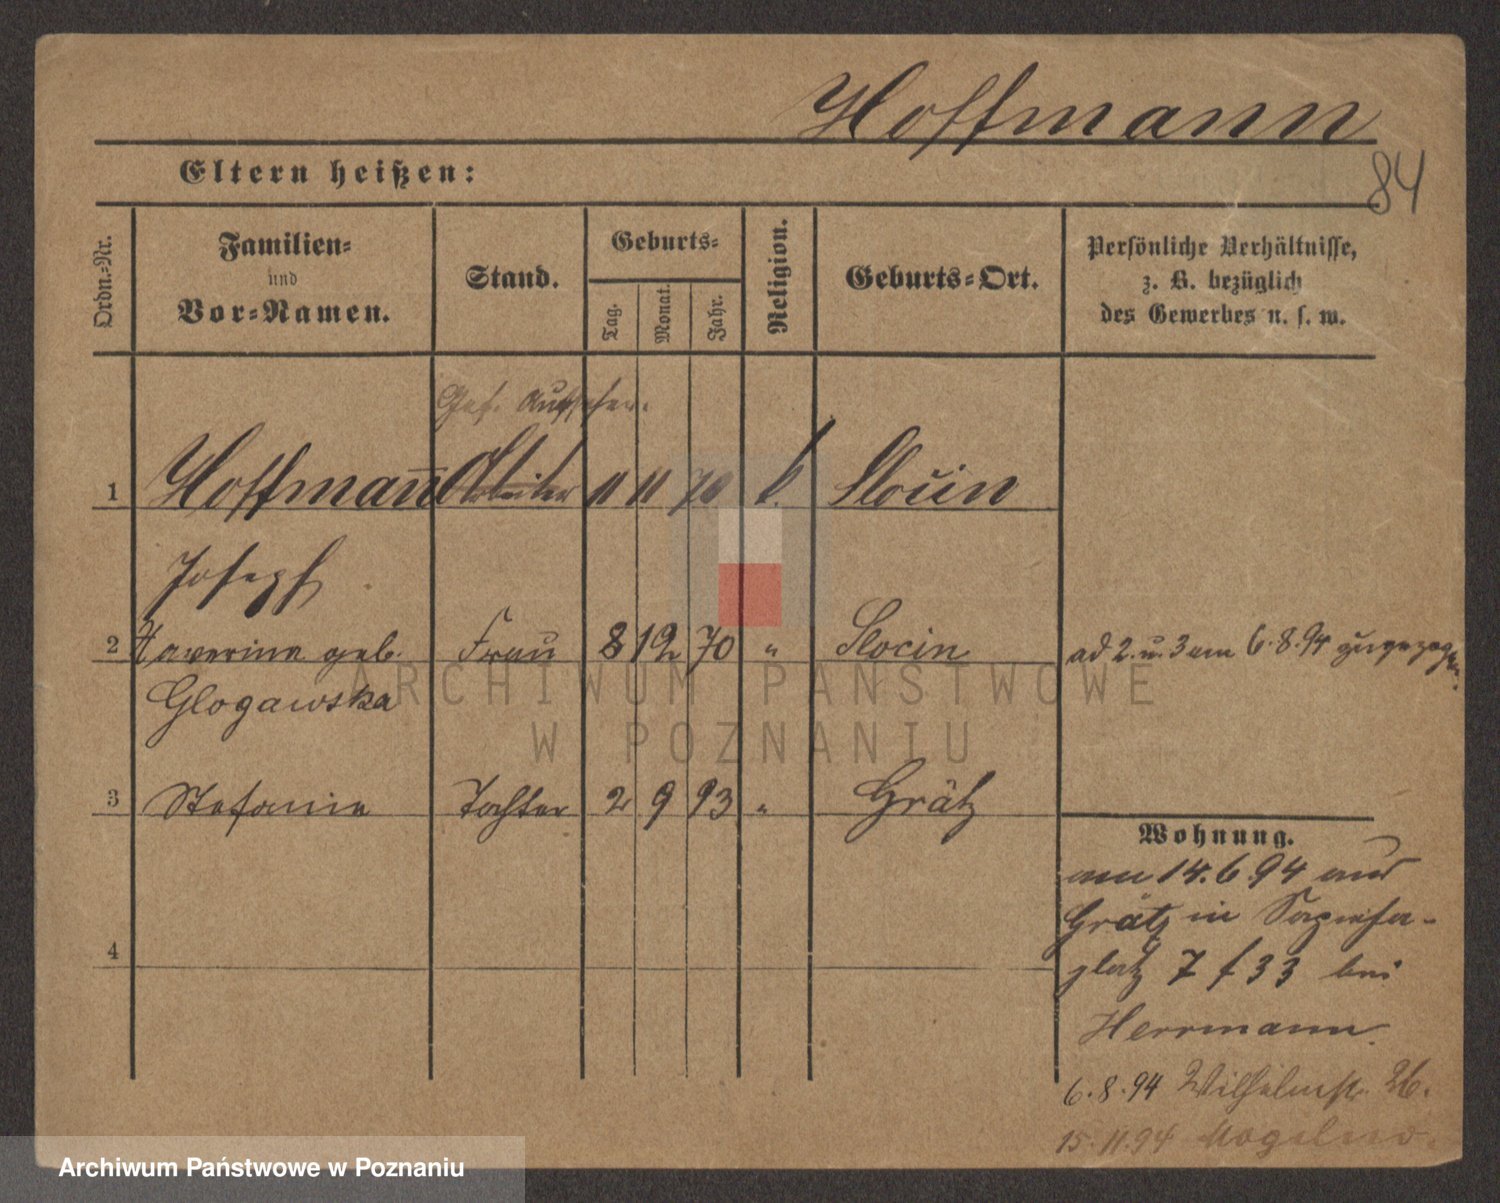 Hoffmann
84
Eltern heißen:
Ordn.-Nr.
Familien- und Vor-Namen.
Stand.
Geburts-
Tag.
Monat.
Jahr.
Religion.
Geburts-Ort.
Persönliche Verhältnisse,
z. B. bezüglich
des Gewerbes u. s. w.
Gef. Aufseher.
1 Hoffmann Arbeiter 11 11 70 k. Slocin
Joseph
2 Xaverina geb. Frau 8 12 70 " Slocin ad 2. u. 3 am 6.8.94 zugezogen.
Glogawska
3 Stefanie Tochter 2 9 93 " Grätz
4
Wohnung.
am 14.6.94 aus
Grätz in Sapieha-
platz 7 f 33 bei
Herrmann.
6.8.94 Wilhelmstr. 26.
15.11.94 Mogilno.
ARCHIWUM PAŃSTWOWE
W POZNANIU
Archiwum Państwowe w Poznaniu